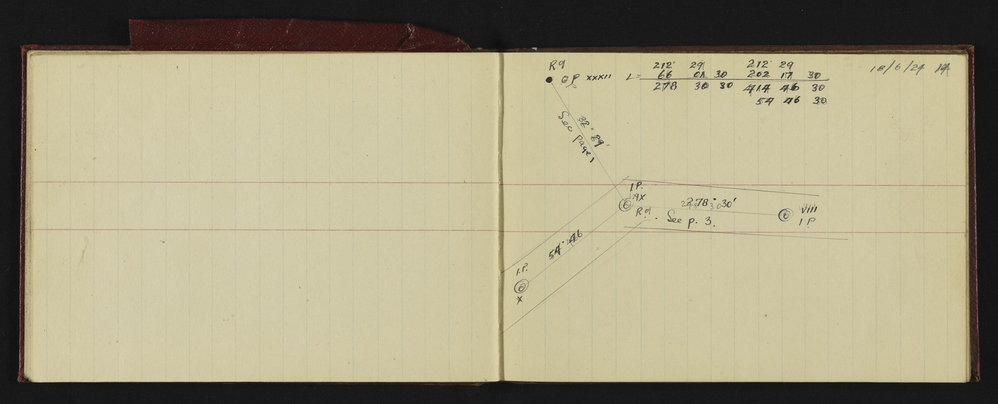 R9
QP XXXII
L=
212° 29
66 01 30
278 30 30
212° 29
202 17 30
414 46 30
54 46 30
18/6/29
32° 29'
See page 1
I P.
R9
278° 30'
See p. 3.
VIII
I P.
54° 46
I.P.
X